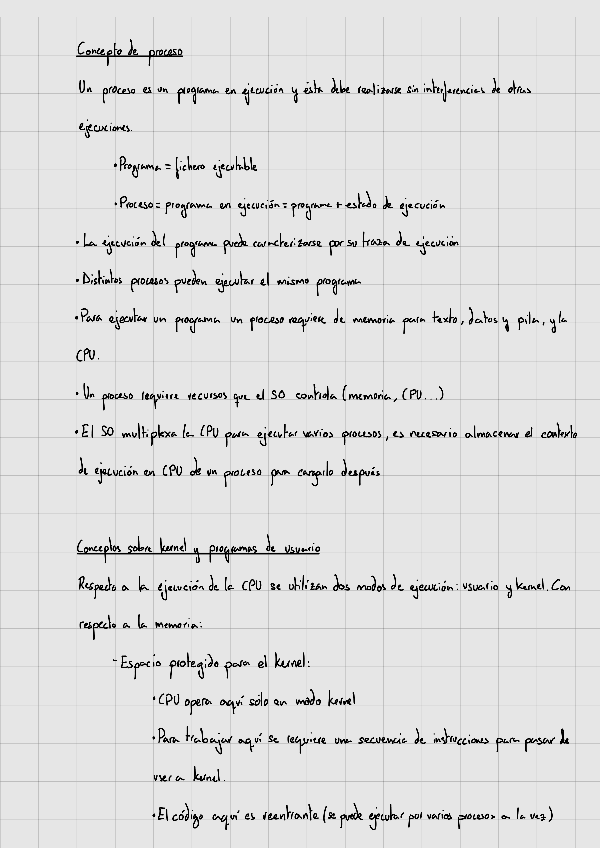 Concepto de proceso
Un proceso es un programa en ejecución y ésta debe realizarse sin interferencias de otras
ejecuciones.
• Programa = fichero ejecutable
• Proceso = programa en ejecución = programa + estado de ejecución
• La ejecución del programa puede caracterizarse por su traza de ejecución
• Distintos procesos pueden ejecutar el mismo programa
• Para ejecutar un programa un proceso requiere de memoria para texto, datos y pila, y la
CPU.
• Un proceso requiere recursos que el SO controla (memoria, CPU...)
• El SO multiplexa la CPU para ejecutar varios procesos, es necesario almacenar el contexto
de ejecución en CPU de un proceso para cargarlo después
Conceptos sobre kernel y programas de usuario
Respecto a la ejecución de la CPU se utilizan dos modos de ejecución: usuario y kernel. Con
respecto a la memoria:
- Espacio protegido para el kernel:
• CPU opera aquí sólo en modo kernel
• Para trabajar aquí se requiere una secuencia de instrucciones para pasar de
user a kernel.
• El código aquí es reentrante (se puede ejecutar por varios procesos a la vez)